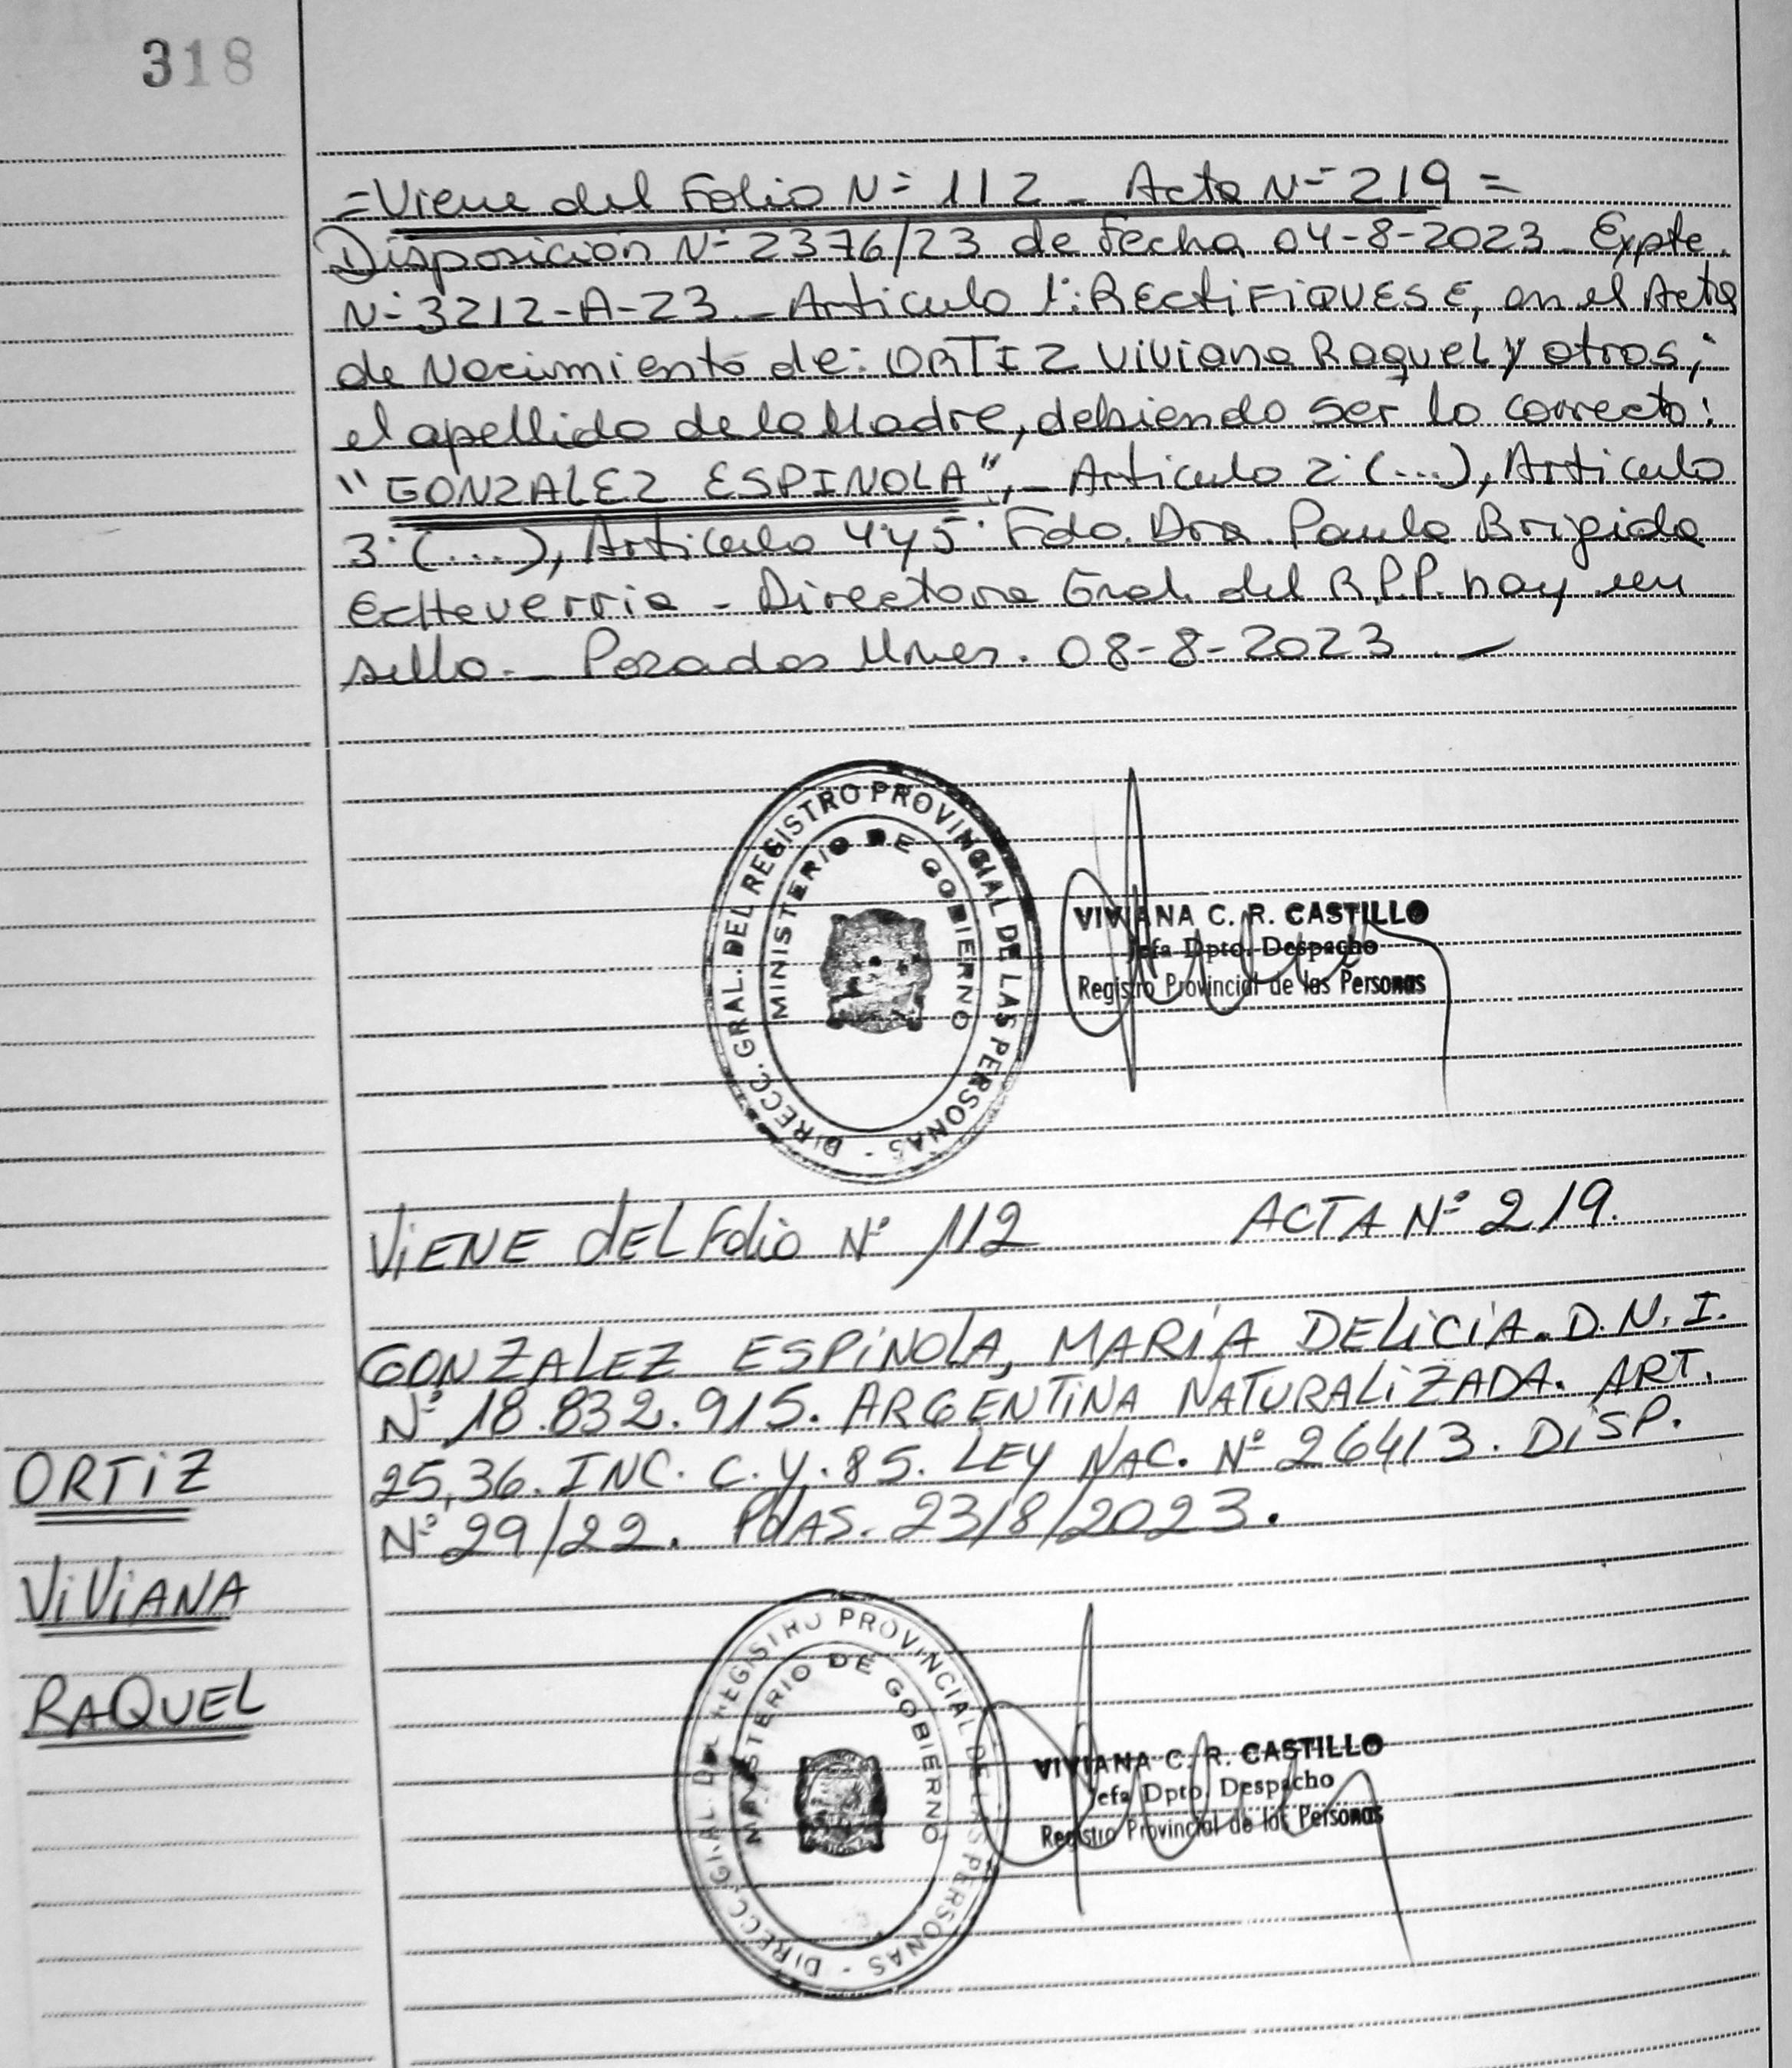 318
=Viene del Folio Nº 112 - Acta Nº 219=
Disposición Nº 2376/23 de Fecha 04-8-2023 - Expte.
Nº 3212-A-23.- Articulo 1º: RECtiFiQUESE, en el Acta
de Nacimiento de: ORTIZ Viviana Raquel y otros;
el apellido de la Madre, debiendo ser lo correcto:
"GONZALEZ ESPINOLA",- Articulo 2º (...), Articulo
3º (....), Articulo 4 y 5º Fdo. Dra. Paula Brigida
Echeverria - Directora Gral. del R.P.P. hay un
sello.- Posadas Mnes. 08-8-2023.-
DIRECC. GRAL. DEL REGISTRO PROVINCIAL DE LAS PERSONAS -
MINISTERIO DE GOBIERNO
VIVIANA C. R. CASTILLO
Jefa Dpto. Despacho
Registro Provincial de las Personas
ViENE dEL Folio Nº 112 ACTA Nº 219.
GONZALEZ ESPiNOLA, MARÍA DELiCiA. D.N.I.
Nº 18.832.915. ARGENTiNA NATURALiZADA. ART.
25,36. INC. C. Y. 85. LEY NAC. Nº 26413. DiSP.
Nº 29/22. PdAS. 23/8/2023.
ORTiZ
ViViANA
RAQUEL
DIRECC. GRAL. DEL REGISTRO PROVINCIAL DE LAS PERSONAS -
MINISTERIO DE GOBIERNO
VIVIANA C. R. CASTILLO
Jefa Dpto. Despacho
Registro Provincial de las Personas